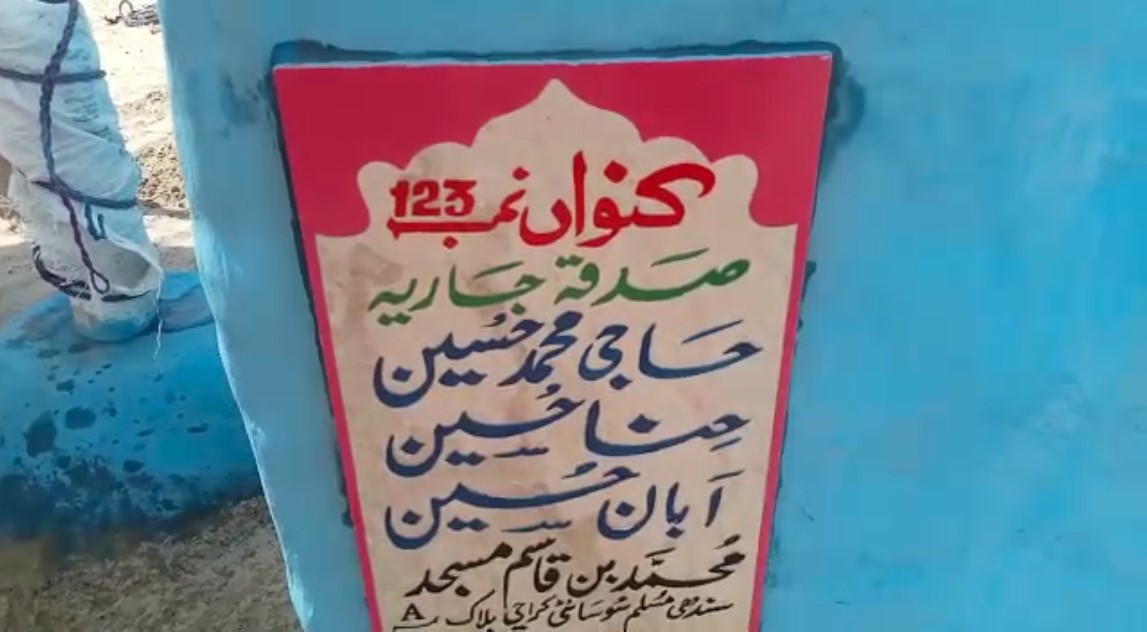 کنواں نمبر 123
صدقہ جاریہ
حاجی محمد حسین
حنا حسین
آبان حسین
محمد بن قاسم مسجد
سندھی مسلم سوسائٹی کراچی بلاک A